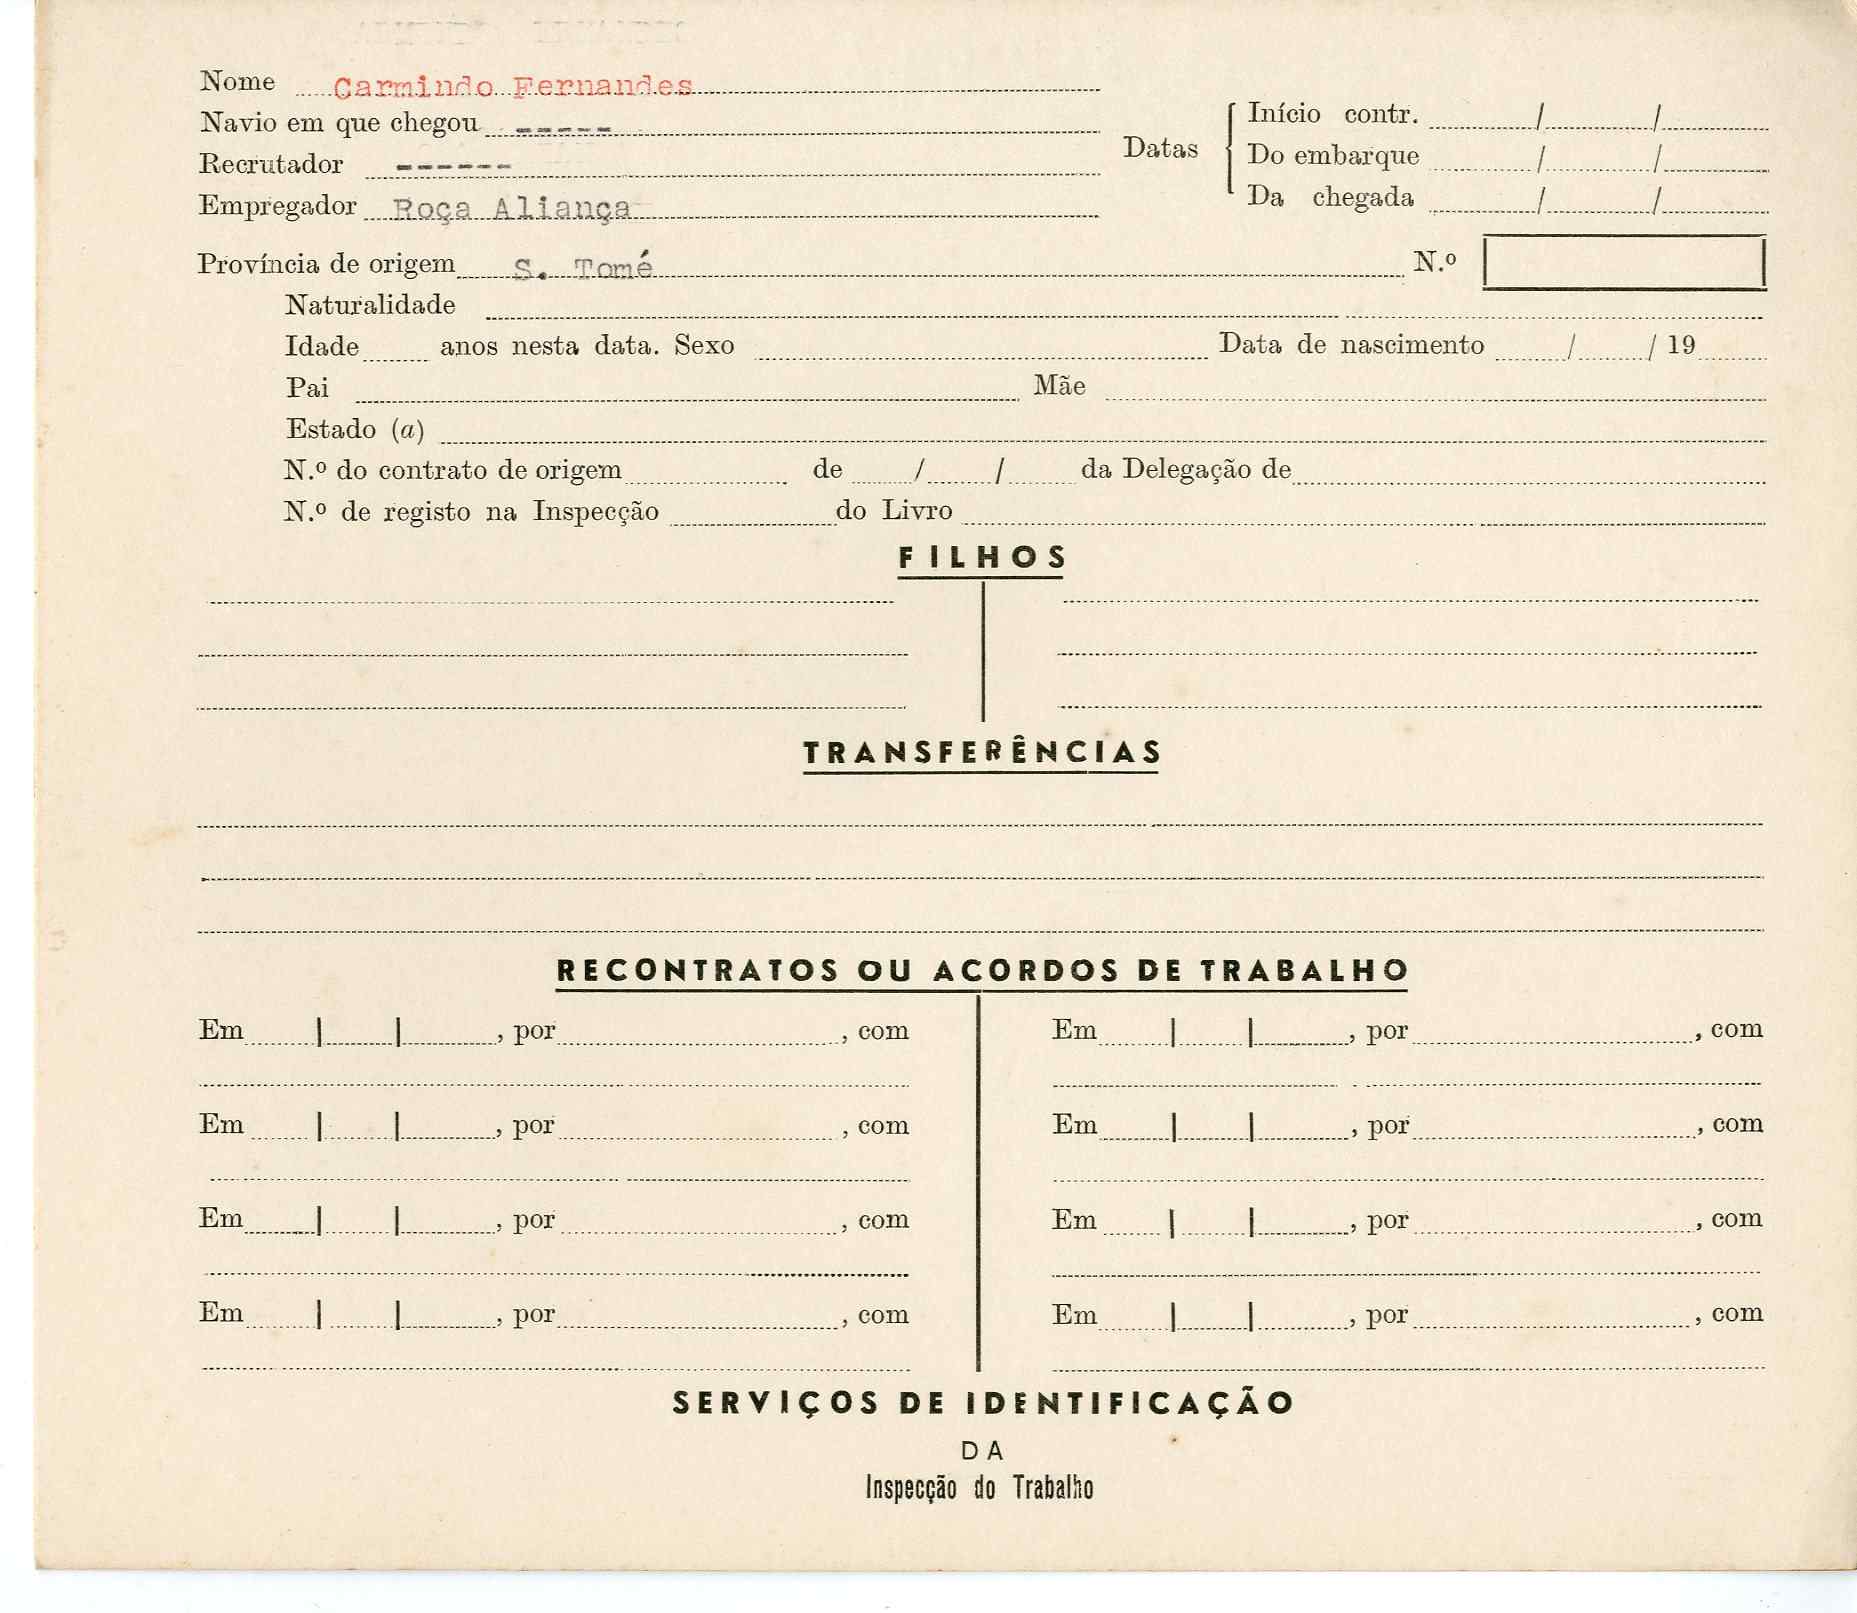 Nome Carmindo Fernandes
Navio em que chegou -----
Recrutador ------
Empregador Roça Aliança
Datas
Início contr. / /
Do embarque / /
Da chegada / /
Província de origem S. Tomé N.º
Naturalidade
Idade anos nesta data. Sexo Data de nascimento / / 19
Pai Mãe
Estado (a)
N.º do contrato de origem de / / da Delegação de
N.º de registo na Inspecção do Livro
FILHOS
TRANSFERÊNCIAS
RECONTRATOS OU ACORDOS DE TRABALHO
Em | | , por , com Em | | , por , com
Em | | , por , com Em | | , por , com
Em | | , por , com Em | | , por , com
Em | | , por , com Em | | , por , com
SERVIÇOS DE IDENTIFICAÇÃO
DA
Inspecção do Trabalho